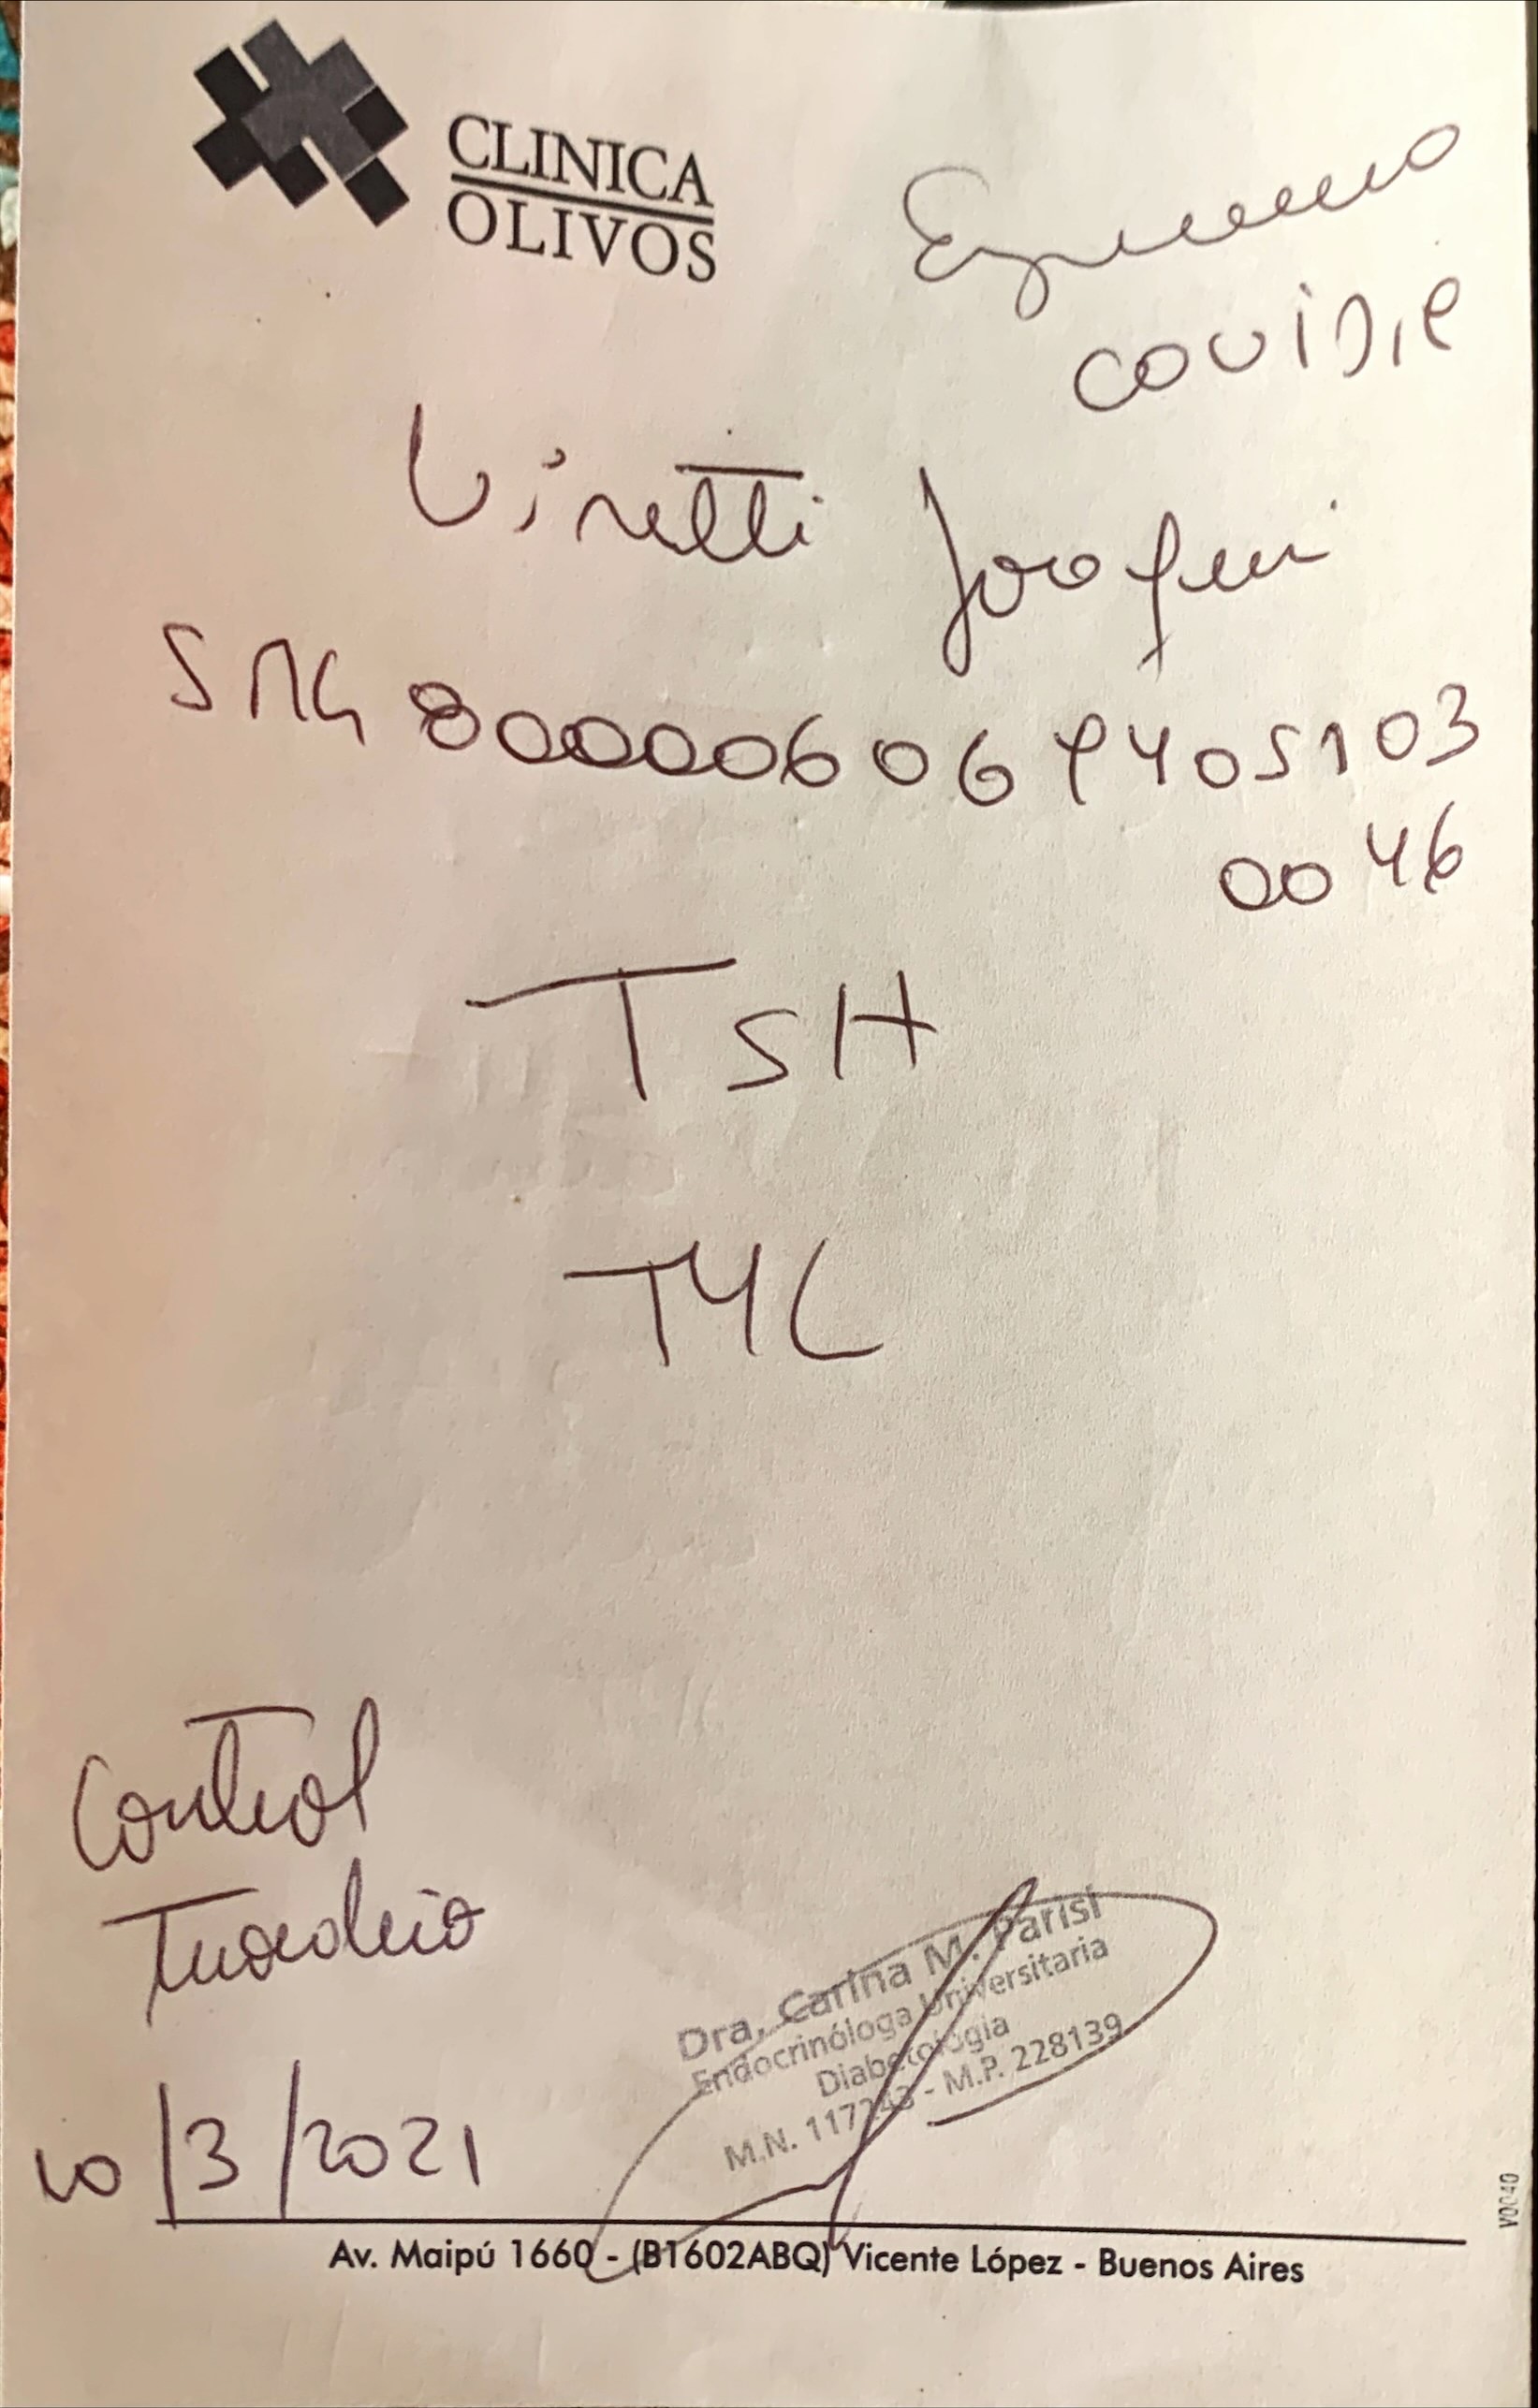 CLINICA
OLIVOS
COVID, 19
Viretti Josefin
SMG 800006069405103
0046
TSH
T4L
Control
Tiroideo
10/3/2021
Dra. Carina M. Parisi
Endocrinóloga Universitaria
Diabetología
M.N. 117243 - M.P. 228139
Av. Maipú 1660 - (B1602ABQ) Vicente López - Buenos Aires
V0040